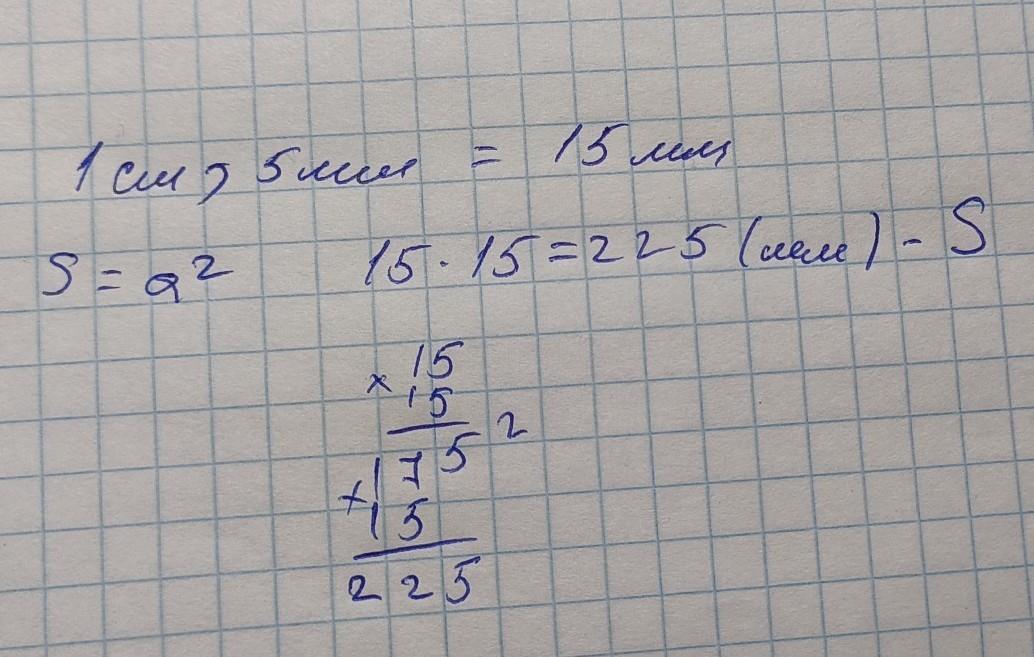 1 см, 5 мм = 15 мм
S = a² 15 · 15 = 225 (мм) - S
× 15
15
175 2
+ 15
225